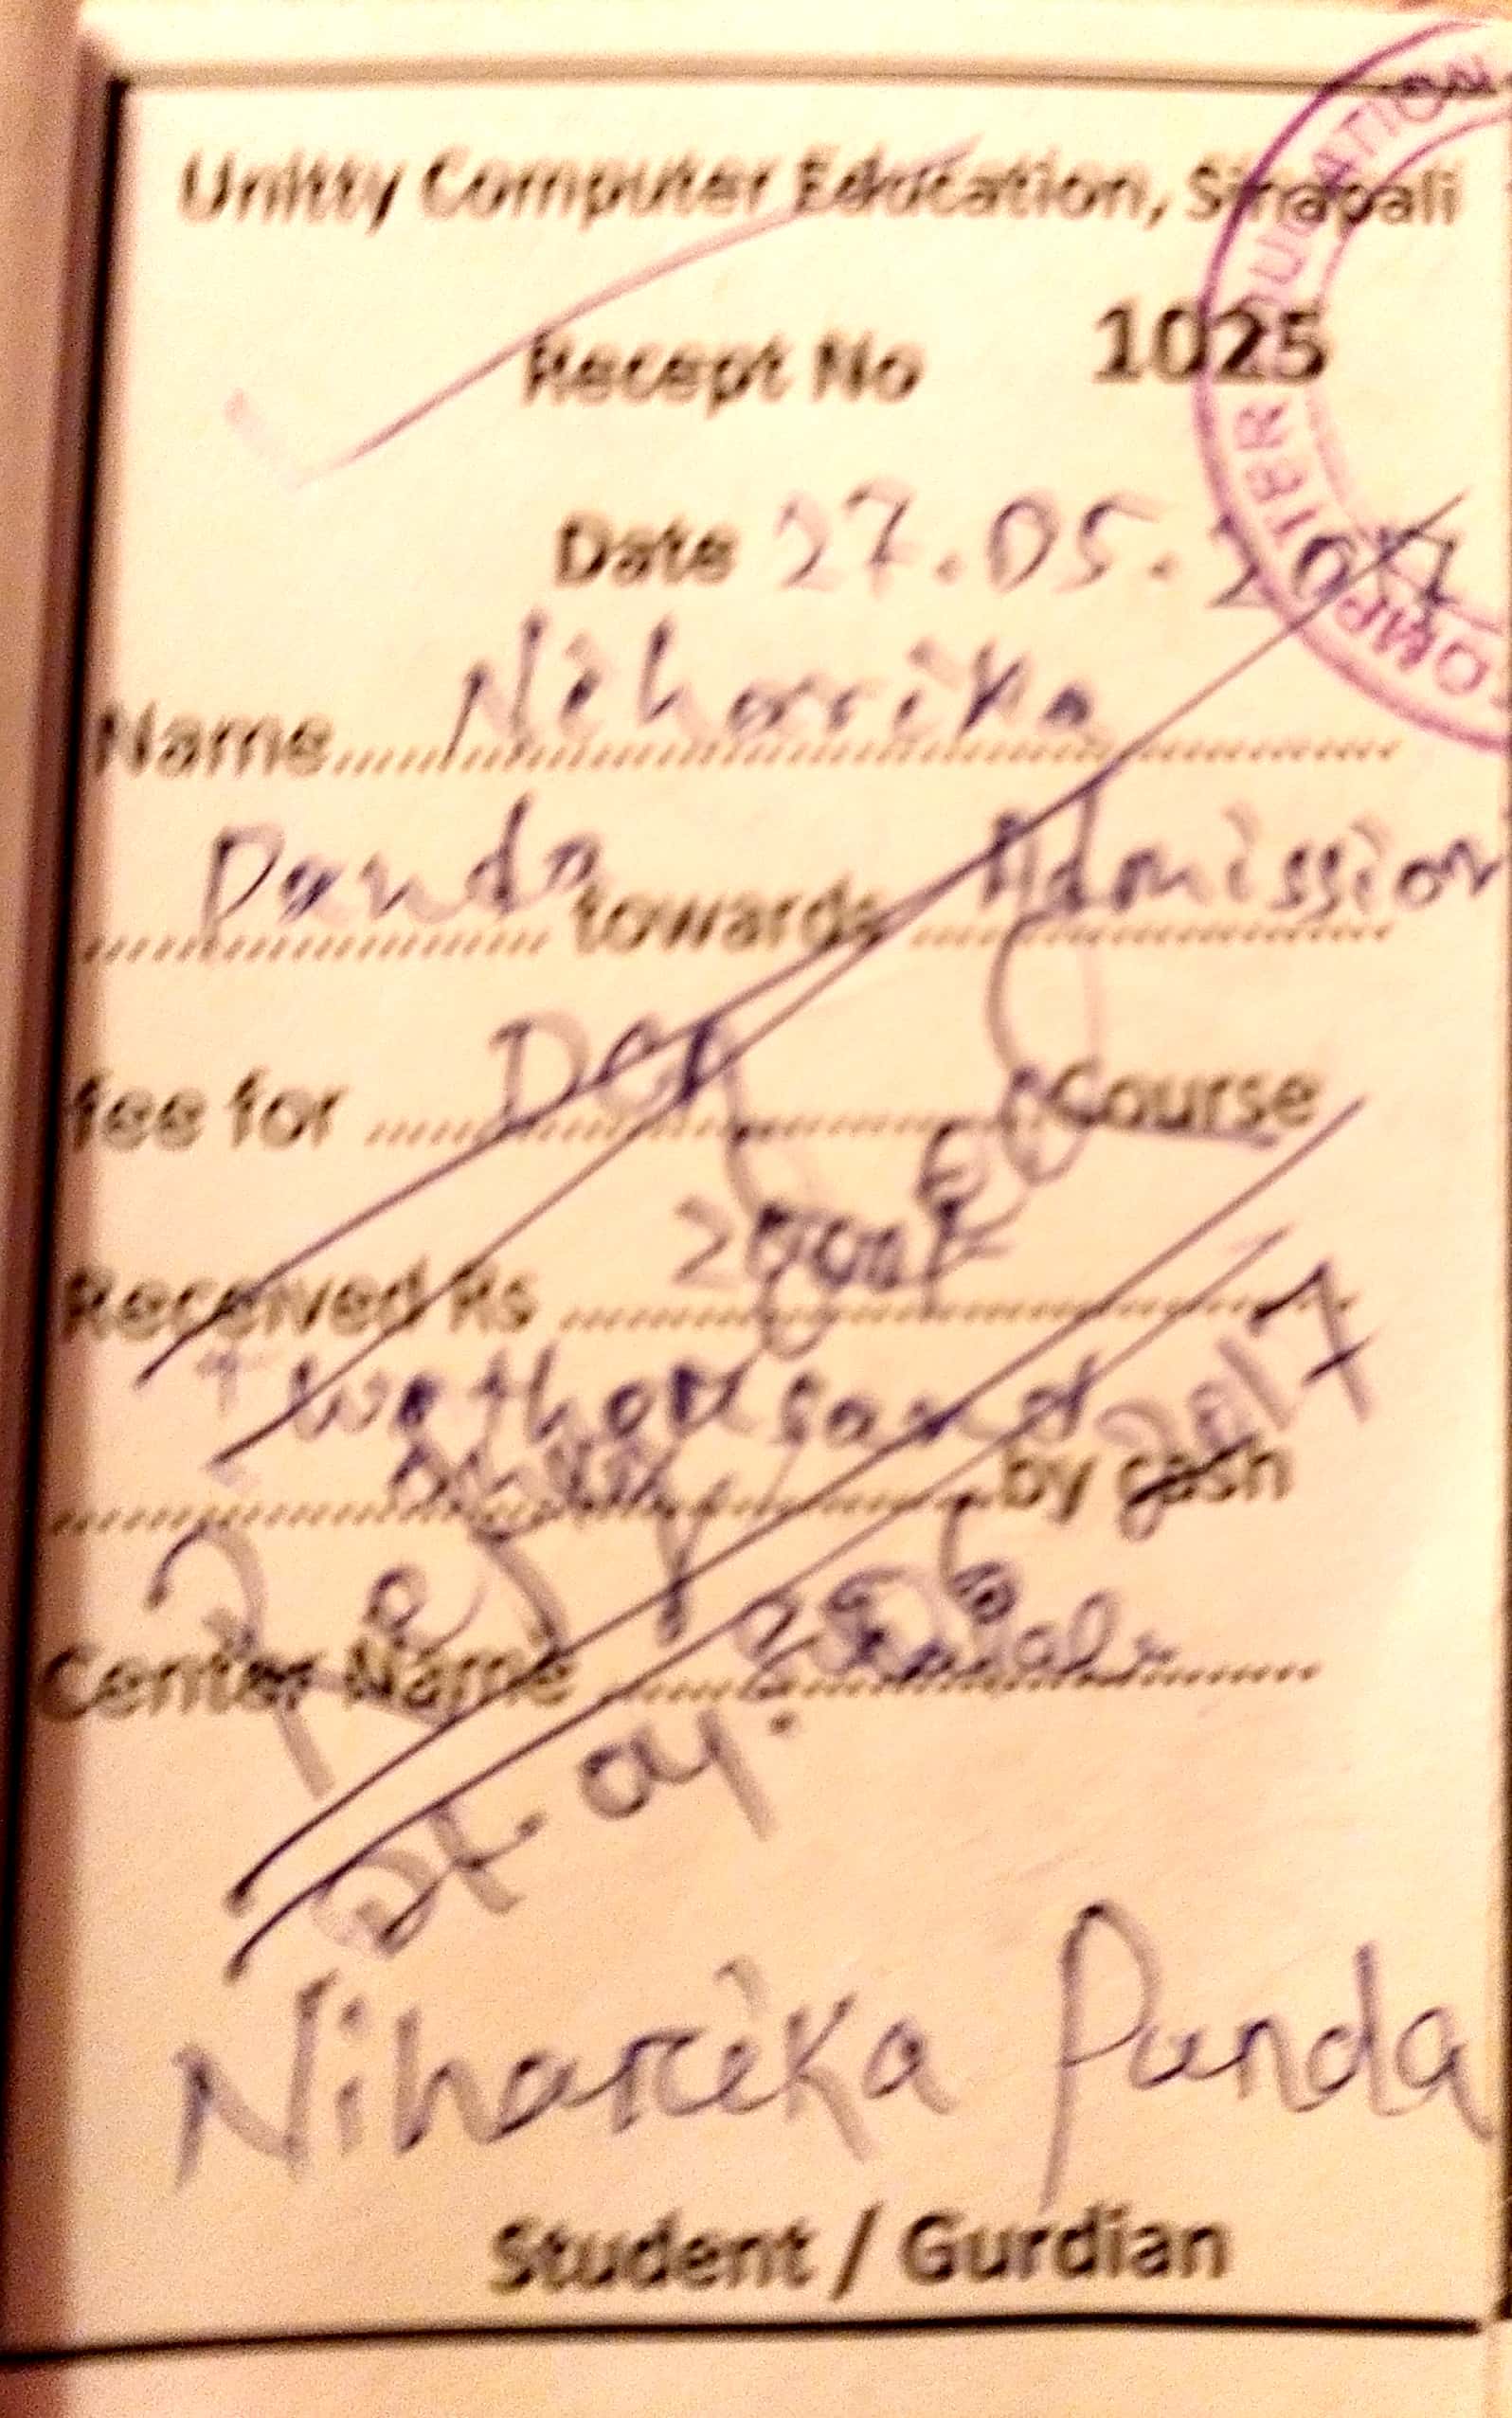 Unitty Computer Education, Sinapali
Recept No 1025
Date 27.05.2017
Name Niharika
Panda towards Admission
fee for Course
Received Rs 2000/-
Two thousand
by cash
Center Name
2017
Niharika Panda
Student / Gurdian